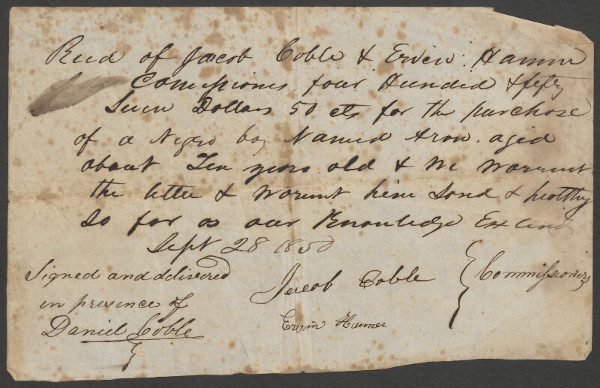 Recd of Jacob Coble & Erven Hamm
Comissioners four Hundred & fifty
Seven Dollars 50 cts for the purchase
of a Negro boy Named Aron aged
about Ten years old & We Warrent
the little & Warent him Sond & healthy
So far as our Knowledge Extends
Sept 28 1850
Signed and delivered
in presence of
Daniel Coble
Jacob Coble
Ervin Hamer
Commissioners